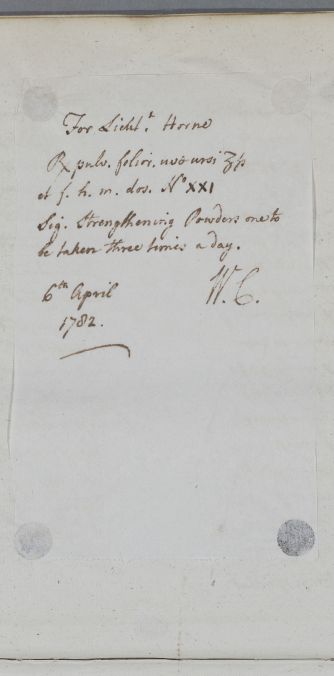 For Lieut.t Horne
℞ pulv. folior. uvæ ursi ʒß
et f. h. m. dos. No XXI
Sig. Strengthening Powders one to
be taken three times a day.
W. C.
6th April
1782.